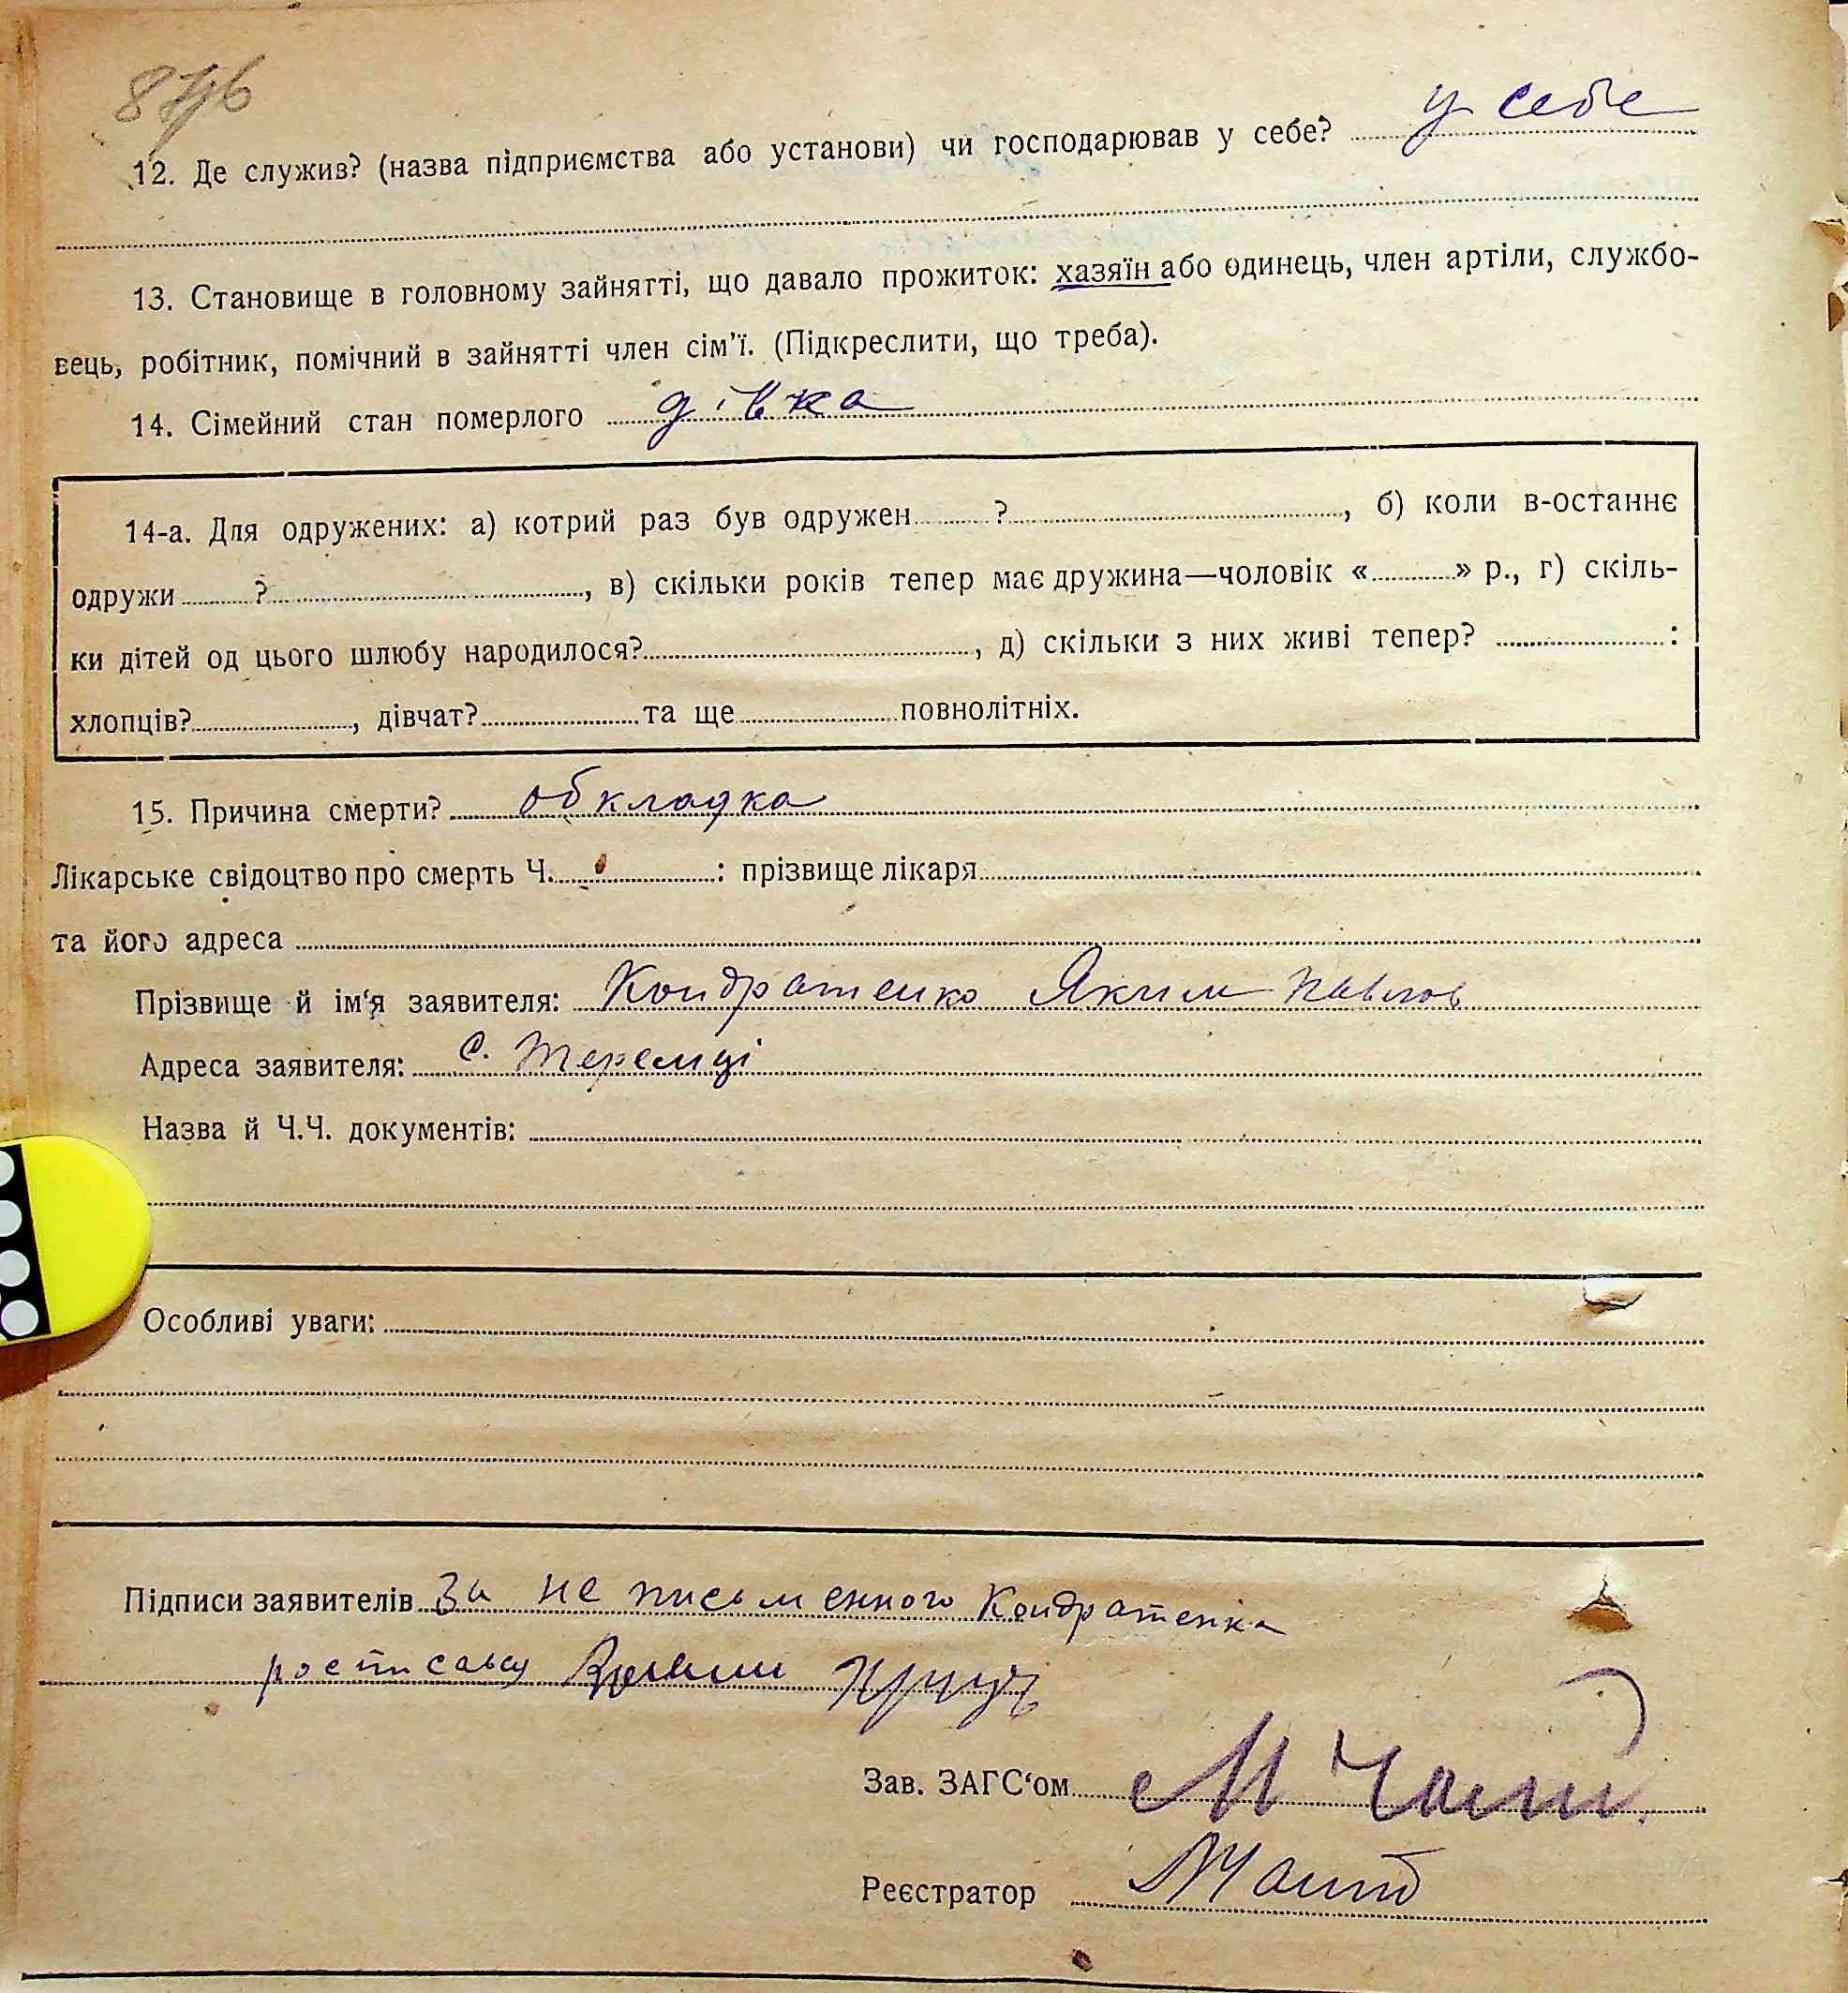 12. Де служив? (назва підприємства або установи) чи господарював у себе? у себе
13. Становище в головному зайнятті, що давало прожиток: хазяїн або одинець, член артіли, службо-
вець, робітник, помічний в зайнятті член сім'ї. (Підкреслити, що треба).
14. Сімейний стан померлого дівка
14-а. Для одружених: а) котрий раз був одружен ?, б) коли в-останнє
одружи ?, в) скільки років тепер має дружина—чоловік « » р., г) скіль-
ки дітей од цього шлюбу народилося?, д) скільки з них живі тепер? :
хлопців?, дівчат? та ще повнолітніх.
15. Причина смерти? обкладка
Лікарське свідоцтво про смерть Ч. : прізвище лікаря
та його адреса
Прізвище й ім'я заявителя: Кондратенко Яким Павлов
Адреса заявителя: с. Теремці
Назва й Ч.Ч. документів:
Особливі уваги:
Підписи заявителів За не письменного Кондратенка
росписавсь
Зав. ЗАГС'ом М
Реєстратор